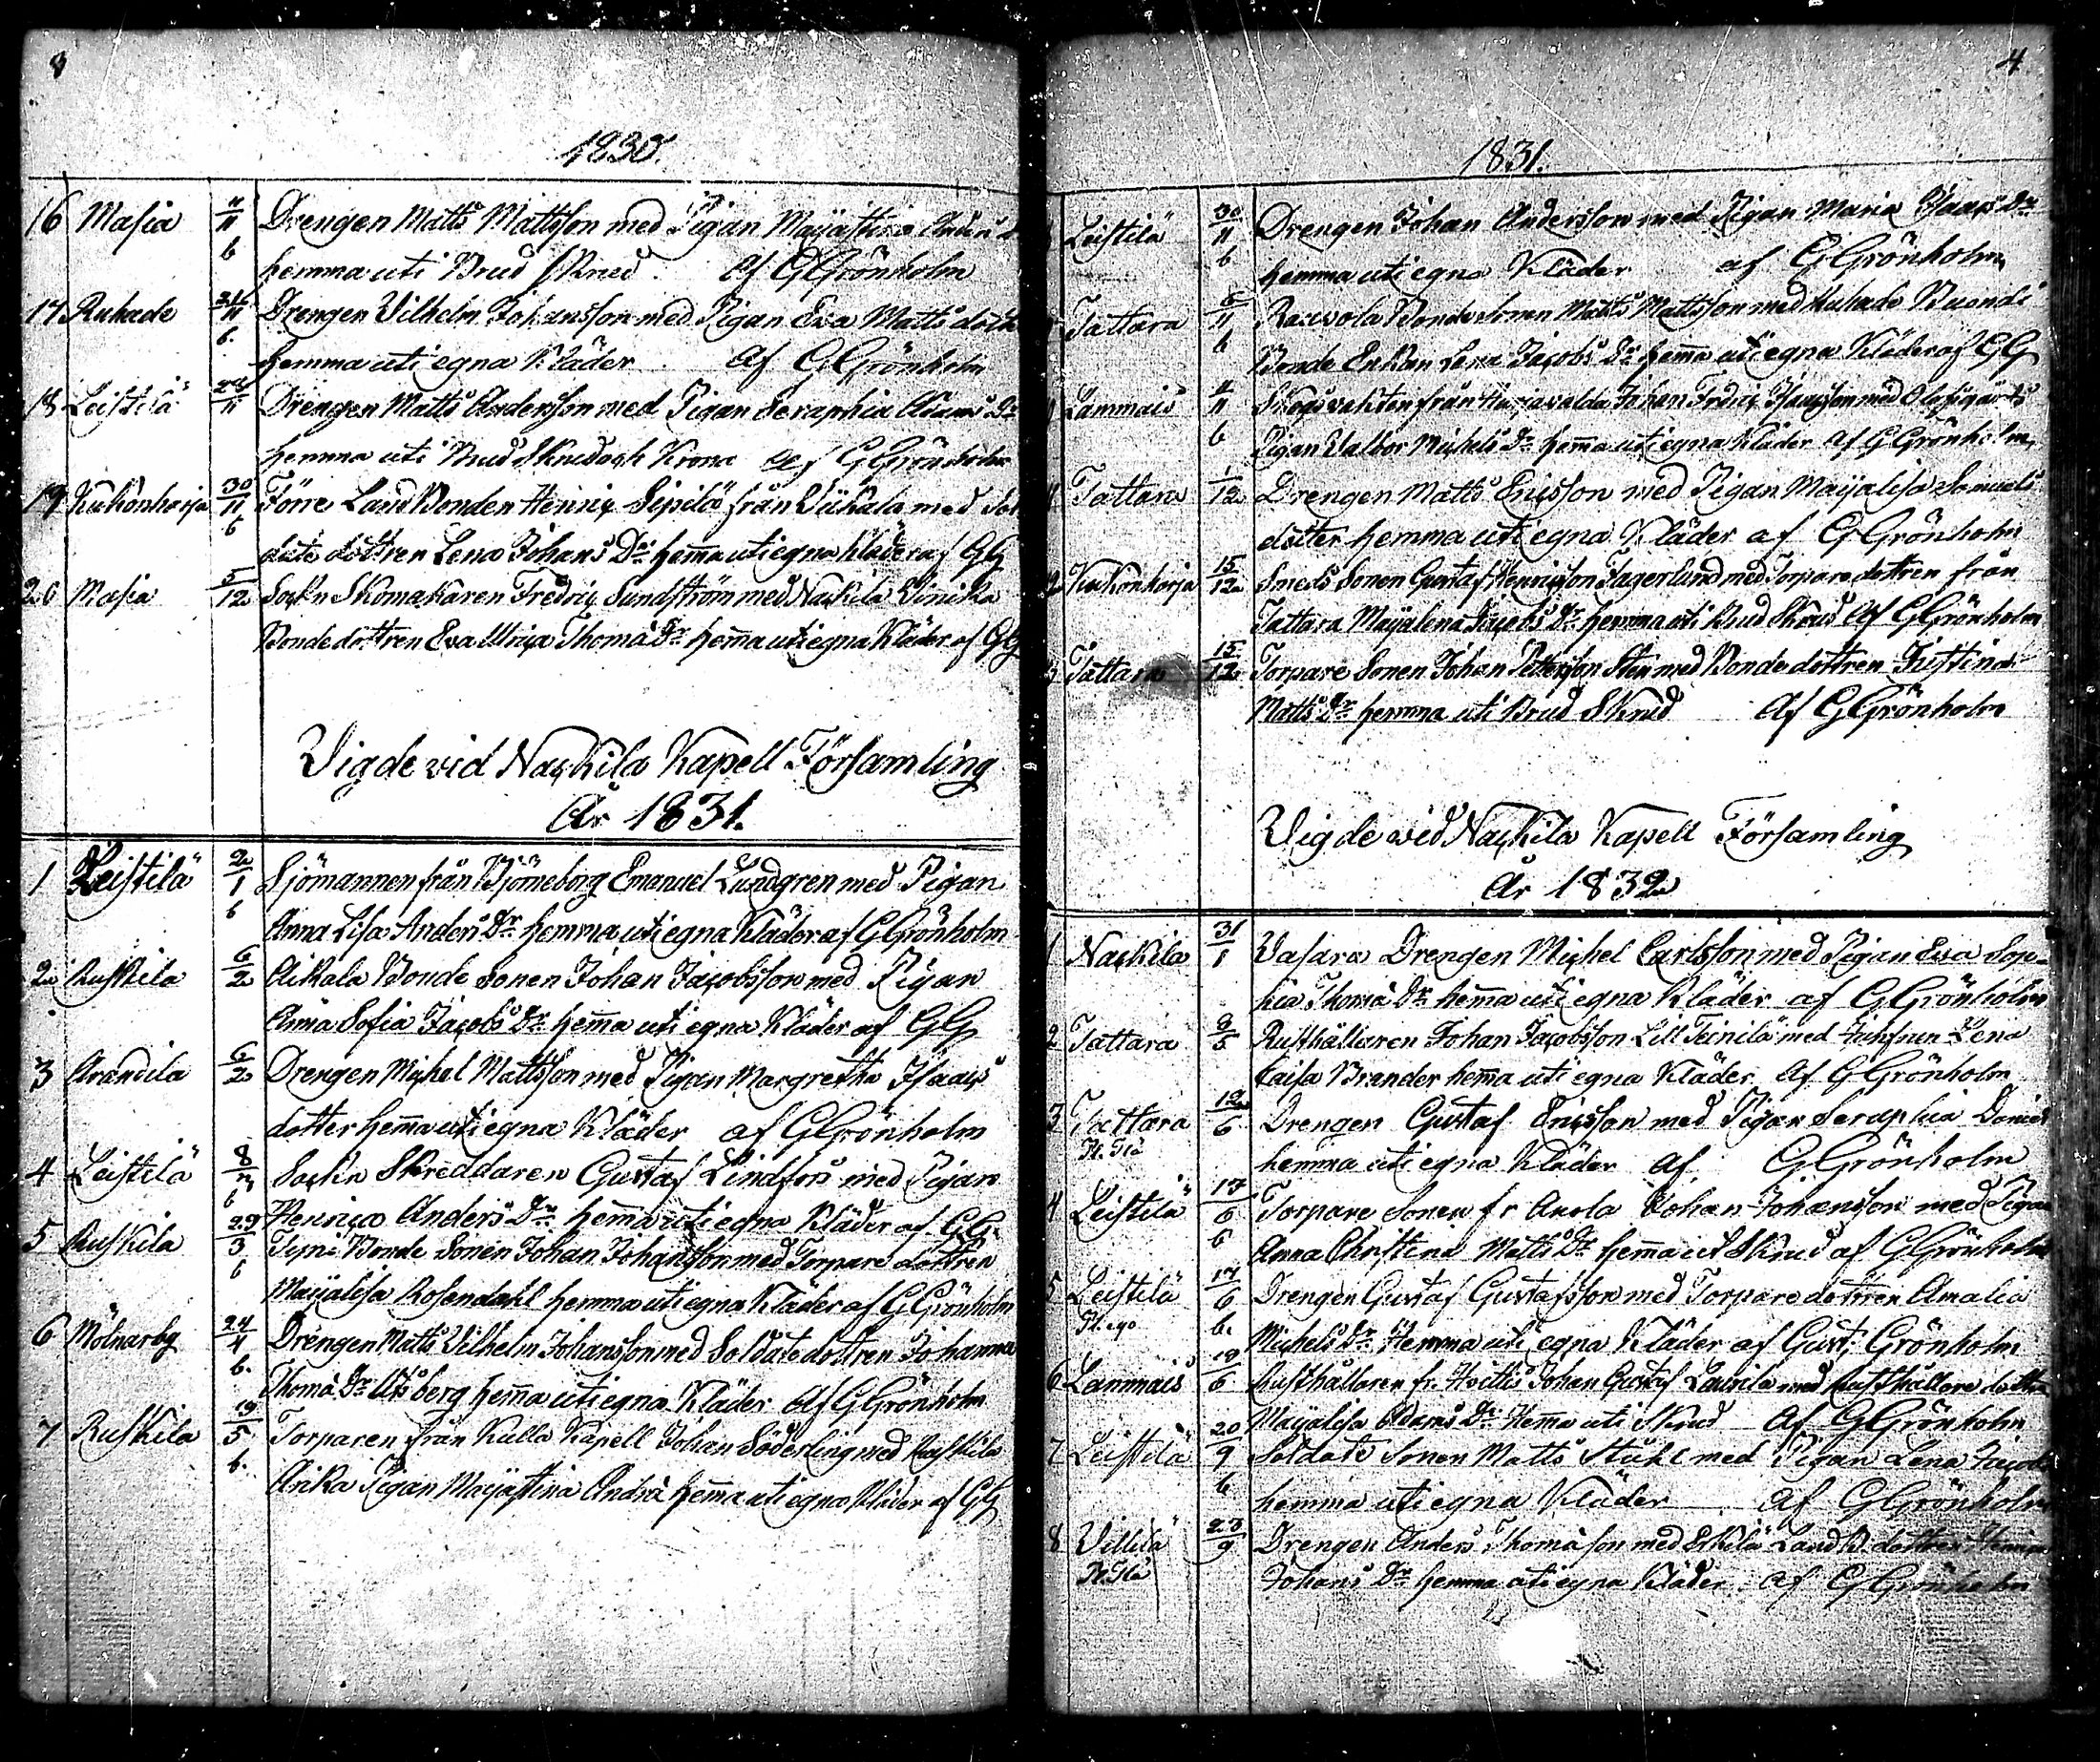 1830.
16 Masia 11/11 Drengen Matts Mattsson med Pigan Maijastina Anders
6 hemma uti Brud Skrud. Af GGrönholm
17 Ruhade 24/11 Drengen Vilhelm Johansson med Pigan Eva Matts dott
6. hemma uti egna Kläder Af GGrönholm
18 Leistilä 24/11 Drengen Matts Andersson med Pigan Seraphia Adams Dr
hemma uti Brud Skrud och Krona af GGrönholm
19 Kukonharja 30/11 Förre Land Bonden Henric Sipilä från Säkala med Sol
6 date dottren Lena Johans Dr hema uti egna kläder af GG
20 Masia 5/12 Sockn Skomakaren Fredric Sundström med Nackila Vinika
Bonde dottren Eva Ulrica Thomæ Dr hema uti egna Kläder af GG
Vigde vid Nackila Kapell Församling
År 1831.
1 Leistilä 2/1 Sjömannen från Björneborg Emanuel Lundgren med Pigan
6 Anna Lisa Anders Dr hemma uti egna Kläder af GGrönholm
2 Ruskila 6/2 Aikala Bonde Sonen Johan Jacobsson med Pigan
Anna Sofia Jacobs Dr hema uti egna Kläder af GG
3 Arandila 6/2 Drengen Michel Mattsson med Pigan Margretha Isaacs
dotter hema uti egna Kläder af GGrönholm
4 Leistilä 8/3 Sockn Skreddaren Gustaf Lindfors med Pigan
6 Henrica Anders Dr hema uti egna Kläder af GG.
5 Ruskila 29/3 Typi Bonde Sonen Johan Johansson med Torpare dottren
6 Maijalisa Rosendahl hemma uti egna Kläder af GGrönholm
6 Molnarby 24/4 Drengen Matts Vilhelm Johansson med Soldate dottren Johanna
6. Thomæ Dr Utsberg hema uti egna Kläder Af GGrönholm
7 Ruskila 19/5 Torparen från Kulla Kapell Johan Söderling med Ruskila
6. Anka Pigan Maijastina Andræ hema uti egna Kläder af GG
4
1831.
Leistilä 30/11 Drengen Johan Andersson med Pigan Maria Isaacs Dr
6 hemma uti egna Kläder af GGrönholm
Tattara 6/11 Bonde Sonen Matts Mattsson med Ruhade
6 Bonde Enkan Lena Jacobs Dr hema uti egna Kläder af GG
Lammais 11/11 Skogsvakten från Harjavalda Johan Fredric Isaacsson med
6 Pigan Valbor Michels Dr hema uti egna Kläder af GGrönholm
Tattara 1/12 Drengen Matts Ericsson med Pigan Maijalisa Samuels
dotter hemma uti egna Kläder af GGrönholm
Kukonharja 15/12 Smeds Sonen Gustaf Henricsson Fagerlund med Torpare dottren från
Tattara Maijalena Jacobs Dr hemma uti Brud Skrud Af GGrönholm
Tattara 15/12 Torpare Sonen Johan Pettersson Sten med Bonde dottren Justina
Matts Dr hemma uti Brud Skrud Af GGrönholm
Vigde vid Nackila Kapell Församling
År 1832
1 Nackila 31/1 Vasara Drengen Michel Carlsson med Pigan Eva Sop-
hia Thomæ Dr hema uti egna Kläder af GGrönholm
2 Tattara 8/5 Rusthållaren Johan Jacobsson Lill Teinilä med Jungfrun Lena
Caisa Brander hema uti egna Kläder Af GGrönholm
3 Tattara 12/6 Drengen Gustaf Ericsson med Pigan Seraphia Daniels
hemma uti egna Kläder af GGrönholm
4 Leistilä 17/6 Torpare Sonen fr Anola Johan Johansson med Pigan
6 Anna Christina Matts Dr hema ut Skrud af GGrönholm
5 Leistilä 17/6 Drengen Gustaf Gustafsson med Torpare dottren Amalia
6. Michels Dr Hemma uti egna Kläder af Gust: Grönholm
6 Lammais 19/6 Rusthållaren fr. Hvittis Johan Gustaf Laurila med Rusthållare dottren
Maijalisa Adams Dr Hema uti Skrud Af GGrönholm
7 Leistilä 20/9 Soldate Sonen Matts Stühl med Pigan Lena Jacobs
6 hemma uti egna Kläder Af GGrönholm
8 Villilä 23/9 Drengen Anders Thomæson med Skilä Land B. dottren Henrica
Johans Dr hemma uti egna Kläder Af GGrönholm